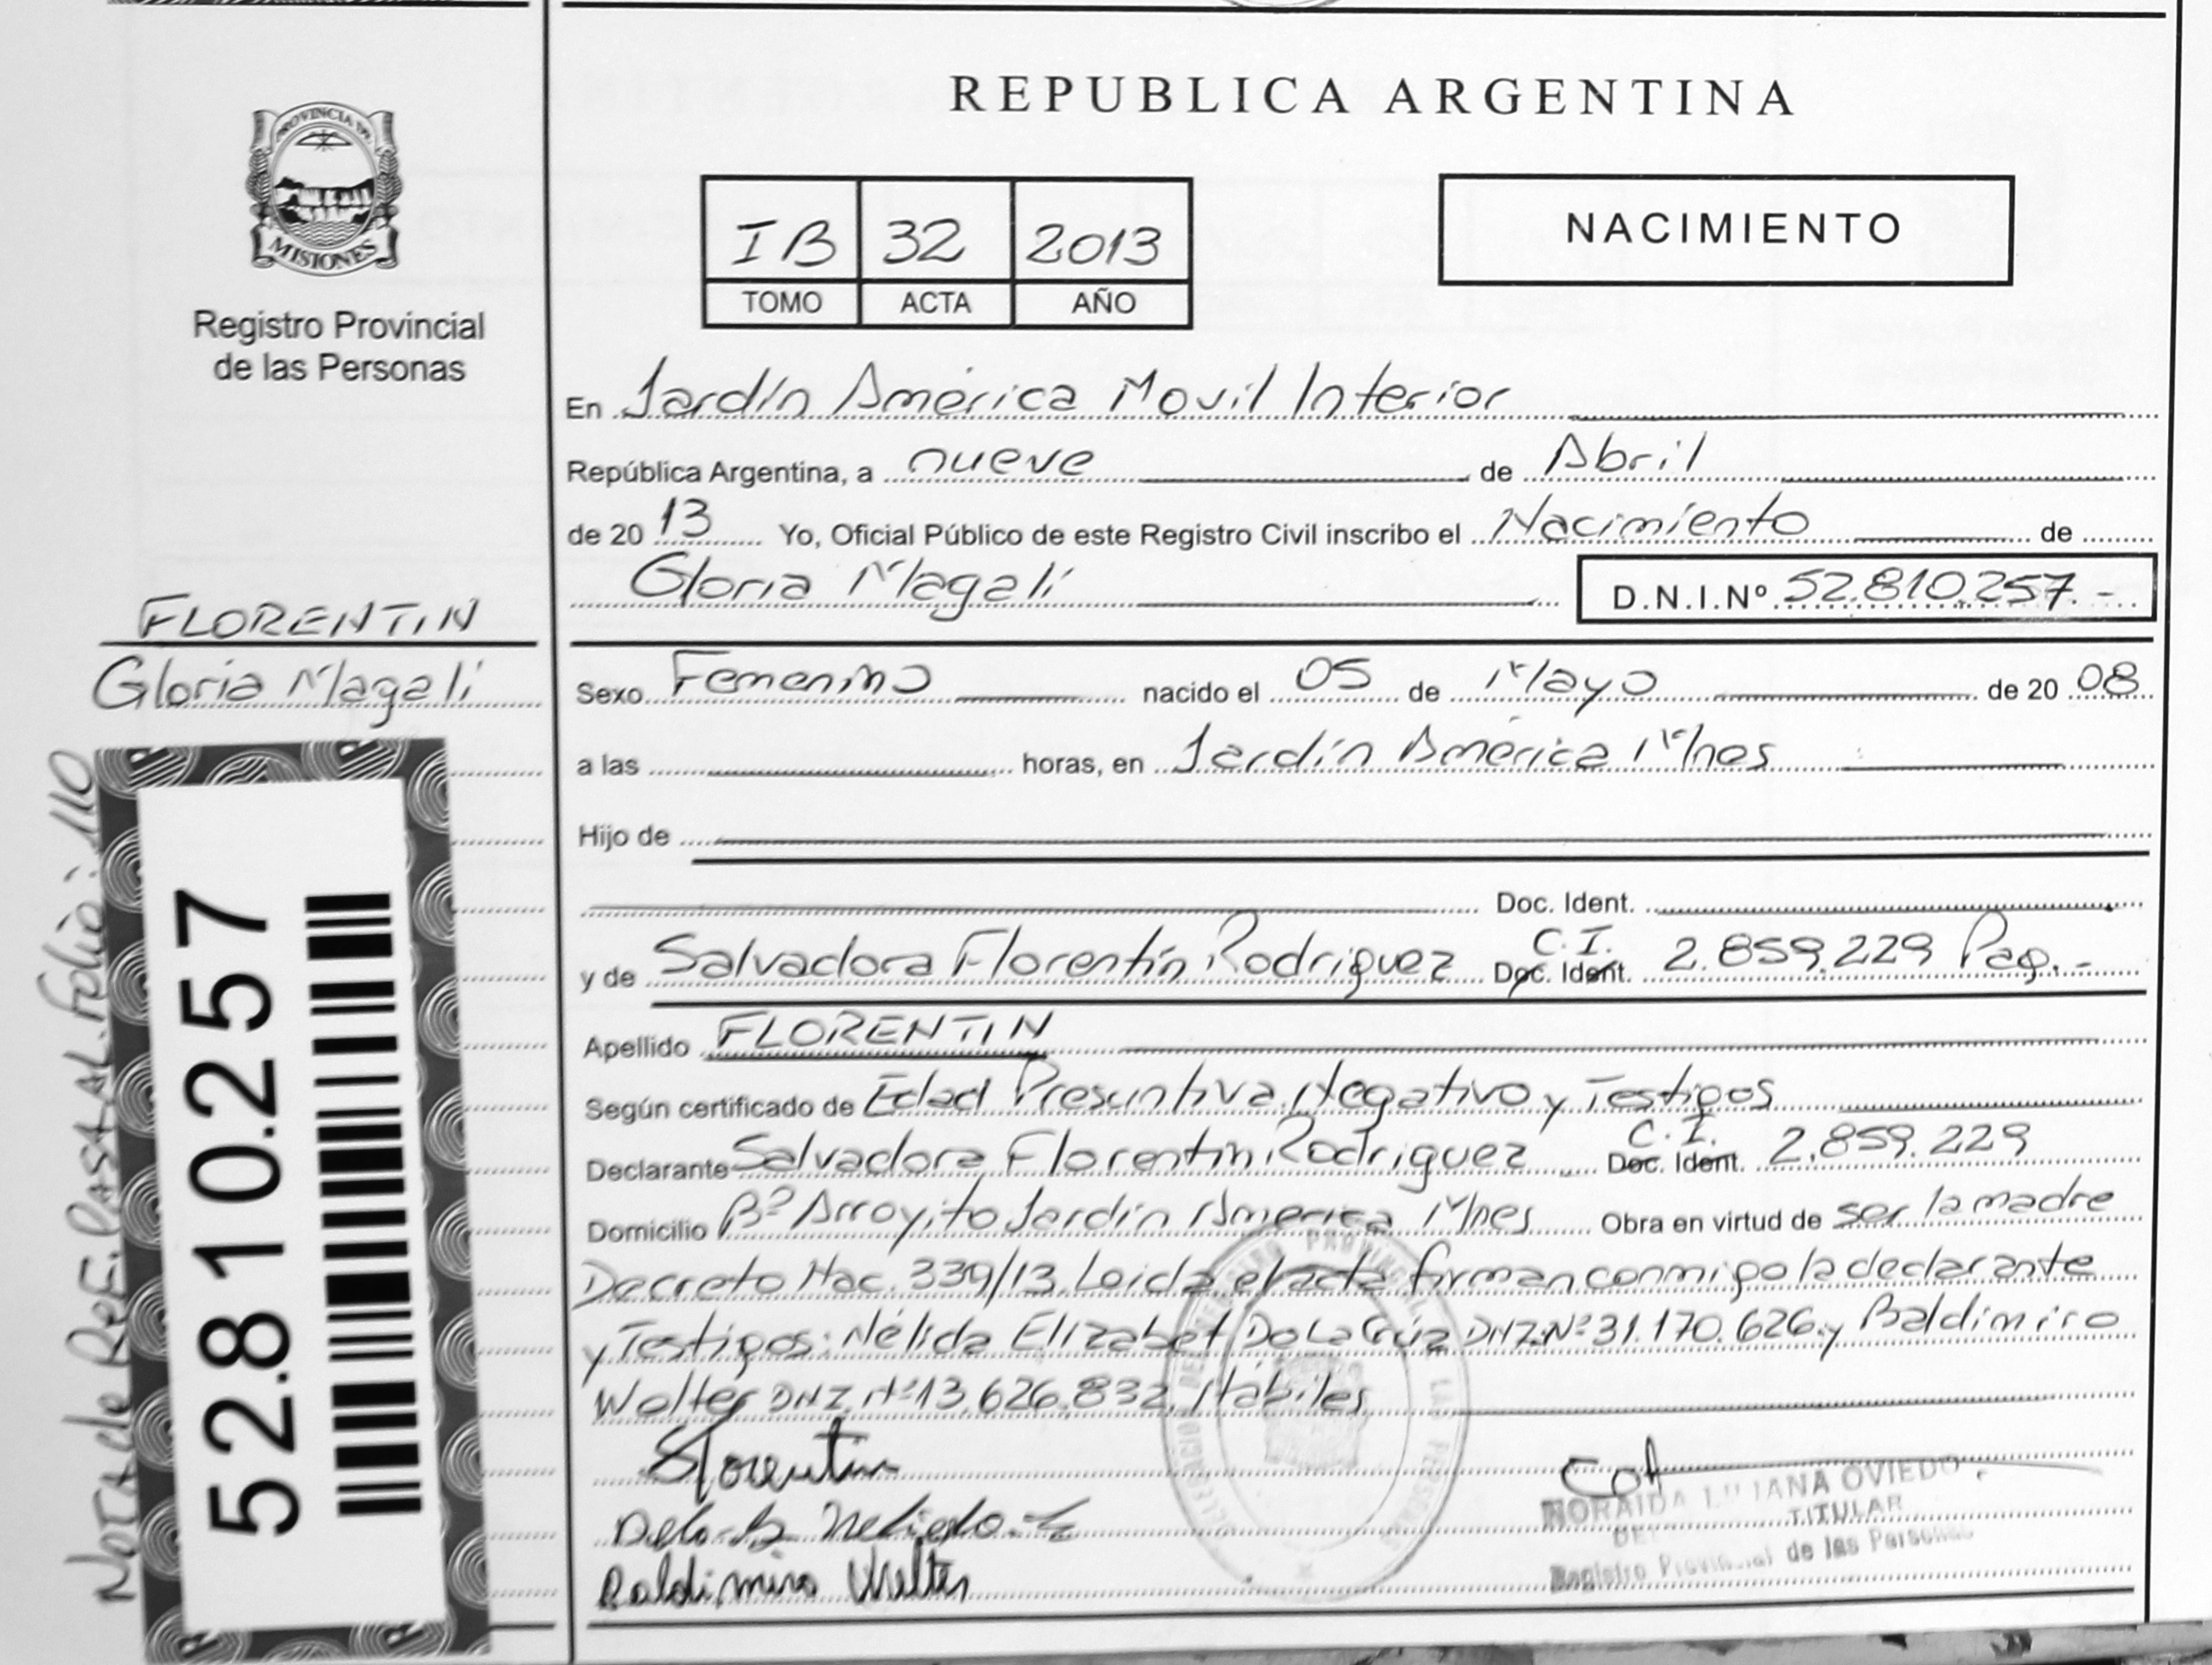 REPUBLICA ARGENTINA
PROVINCIA DE
MISIONES
Registro Provincial
de las Personas
IB 32 2013
TOMO ACTA AÑO
NACIMIENTO
En Jardín América Movil Interior
República Argentina, a nueve de Abril
de 20 13 Yo, Oficial Público de este Registro Civil inscribo el Nacimiento de
Gloria Magalí
D.N.I.Nº 52.810.257.-
FLORENTIN
Gloria Magalí
Sexo Femenino nacido el 05 de Mayo de 20 08
a las horas, en Jardín América Mnes
Hijo de
Doc. Ident.
y de Salvadora Florentín Rodriguez C.I. Doc. Ident. 2.859.229 Pag.-
Apellido FLORENTIN
Según certificado de Edad Presuntiva, Negativo y Testigos
Declarante Salvadora Florentin Rodriguez C.I. Doc. Ident. 2.859.229
Domicilio Bº Arroyito Jardín América Mnes Obra en virtud de ser la madre
Decreto Nac. 339/13. Leida el acta firman conmigo la declarante
y Testigos: Nélida Elizabet De La Cruz DNI.Nº 31.170.626 y Baldimiro
Welter DNI.Nº 13.626.832. Hábiles
Florentin
Baldimiro Welter
NORAIDA LILIANA OVIEDO
TITULAR
Registro Provincial de las Personas
52.810.257
Nota de REF. Folio: 110